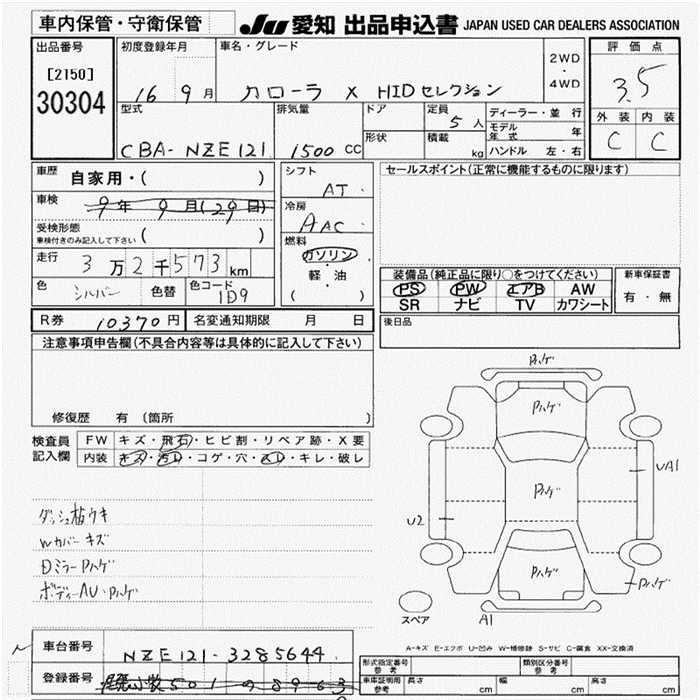 車内保管・守衛保管
JU 愛知 出品申込書 JAPAN USED CAR DEALERS ASSOCIATION
出品番号 初度登録年月 車名・グレード 評価点
[2150]
30304
16 9月 カローラ X HIDセレクション 2WD・4WD 3.5
型式 排気量 ドア 定員 5人 ディーラー・並行 外装 内装
形状 積載 kg モデル年式 年
CBA-NZE121 1500 CC ハンドル 左・右 C C
車歴 自家用・( ) シフト AT セールスポイント(正常に機能するものに限ります)
車検 9年 9月(29日) 冷房 AAC
受検形態 ( )
車検付きのみ記入して下さい
燃料 ガソリン・軽油
( )
走行 3万2千573km
色 シルバー 色替 色コード 1D9
装備品(純正品に限り○をつけてください) 新車保証書
PS PW エアB AW 有・無
SR ナビ TV カワシート
R券 10370円 名変通知期限 月 日 後日品
注意事項申告欄(不具合内容等は具体的に記入して下さい)
修復歴 有 (箇所 )
検査員記入欄 FW キズ・飛石・ヒビ割・リペア跡・X要
内装 キズ・汚レ・コゲ・穴・スレ・キレ・破レ
ダッシュ板ウキ
Wカバーキズ
DミラーPハゲ
ボディーAU・Pハゲ
Pハゲ
Pハゲ
UA1
Pハゲ
U2
Pハゲ
Pハゲ
スペア
A1
A-キズ E-エクボ U-凹み W-補修跡 S-サビ C-腐食 XX-交換済
車台番号 NZE121-3285644
登録番号 501 8963
形式指定番号 参考 類別区分番号 参考
車庫証明用 参考 長さ cm 幅 cm 高さ cm